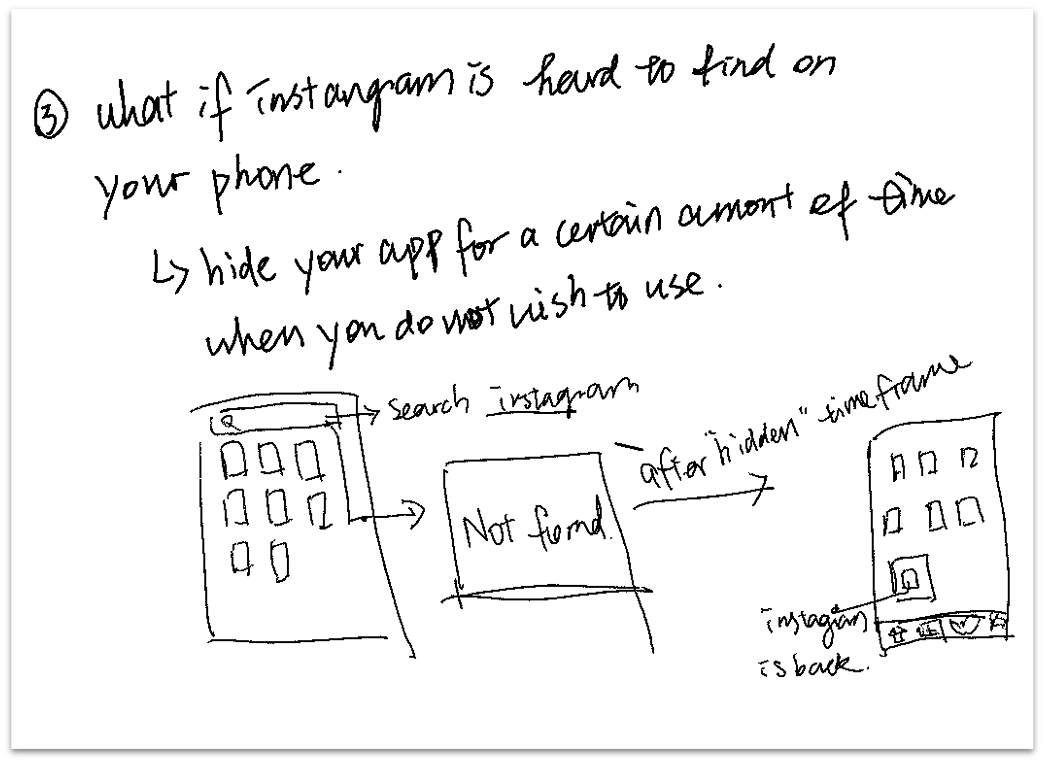 ③ what if instangram is hard to find on
your phone.
↳ hide your app for a certain amont of time
when you do not wish to use.
search instagram
after "hidden" timeframe
Not found.
instagram
is back.